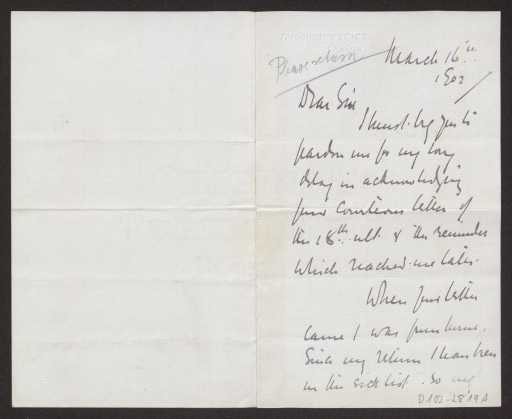 Please return
March 16th
1902
Dear Sir
I must beg you to
pardon me for my long
delay in acknowledging
your courteous letter of
the 18th ult. & the reminder
which reached me later.
When your letter
came I was from home.
Since my return I have been
in the sick list. So my
D.102-28'19A